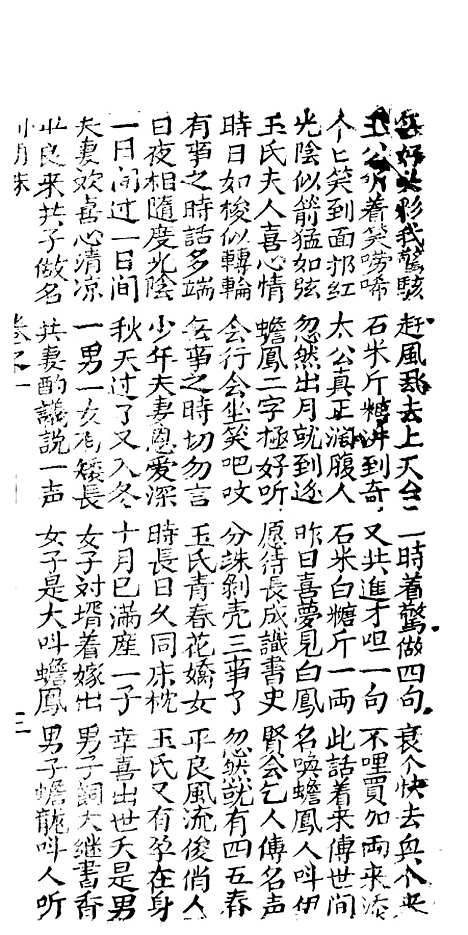 好头彩我驚駭 赶風飛去上天台 一時着驚做四句 衰个快去興个來
王公听着笑唠唏 石米斤糖讲到奇 又共進才呾一句 不哩賈加両来添
个匕笑到面邦红 太公真正濶腹人 石米白糖斤一両 此話着来傳世間
光陰似箭猛如弦 忽然出月就到 昨日喜夢見白鳳 名喚蟾鳳人叫伊
玉氏夫人喜心情 蟾鳳二字極好听 原待長成識書史 賢会乞人傳名声
時日如梭似轉輪 会行会坐笑吧吻 分誅剝壳三事了 忽然就有四五春
有事之時話多端 無事之時切勿言 玉氏青春花嬌女 平良風流俊俏人
日夜相隨度光陰 少年夫妻恩爱深 時長日久同床枕 玉氏又有孕在身
一日间过一日间 秋天过了又入冬 十月已滿產一子 幸喜出世夭是男
夫妻欢喜心清凉 一男一女有矮長 女子対壻着嫁出 男子大继書香
平良来共子做名 共妻酌議説一声 女子是大叫蟾鳳 男子蟾龍叫人听
明珠 卷之一 三